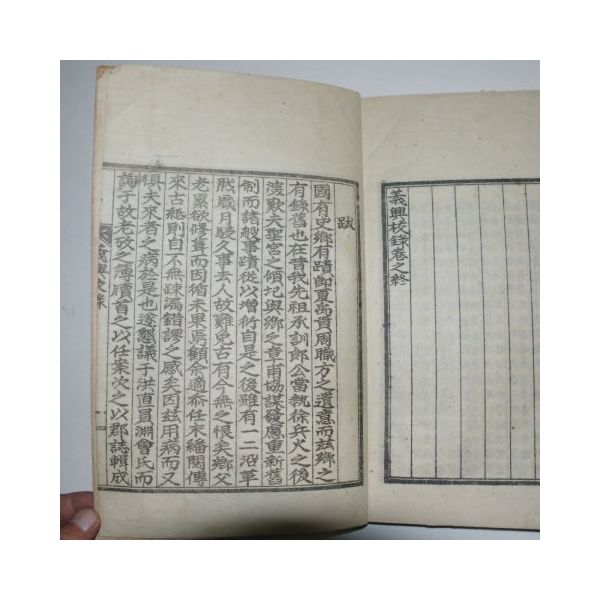 義興校錄卷之終
跋
國有史鄕有蹟卽夏禹貢周職方之遺意而玆鄕之
有錄舊也在昔我先祖承訓郞公當執徐兵火之後
淩歎夫聖宮之傾圮與鄕之章甫協謀發慮重新舊
制而諸般事蹟從以增衍自是之後雖有一二沿革
然歲月寢久事去人故難免古有今無之恨矣鄕父
老累欲修葺而因循未果焉顧余適忝任末繙閱傳
來古紙則自不無疎漏錯謬之感矣因玆用病而又
懼夫來者之病於是也遂懇議于洪直員淵會氏而
詢于故老攷之簿牘首之以任案次之以郡誌輯成
義興校錄